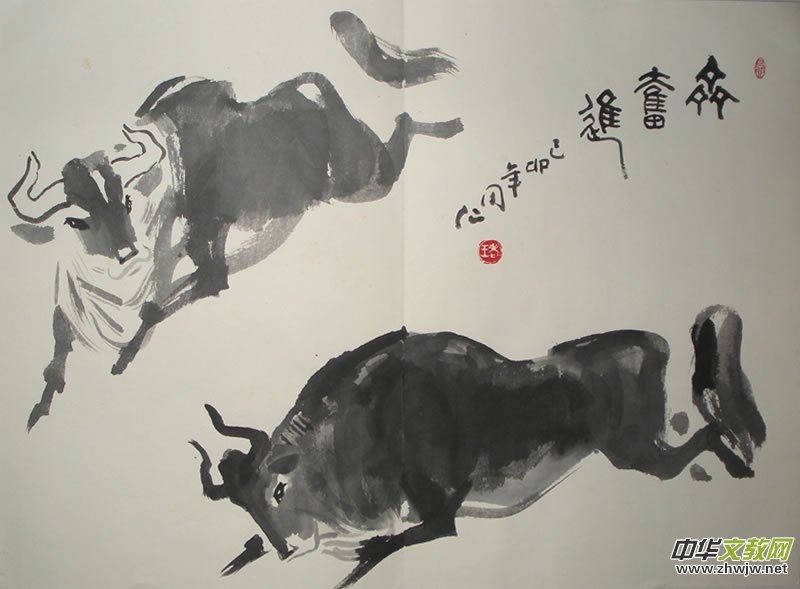 齊奮進
己卯年
中华文教网
www.zhwjw.net